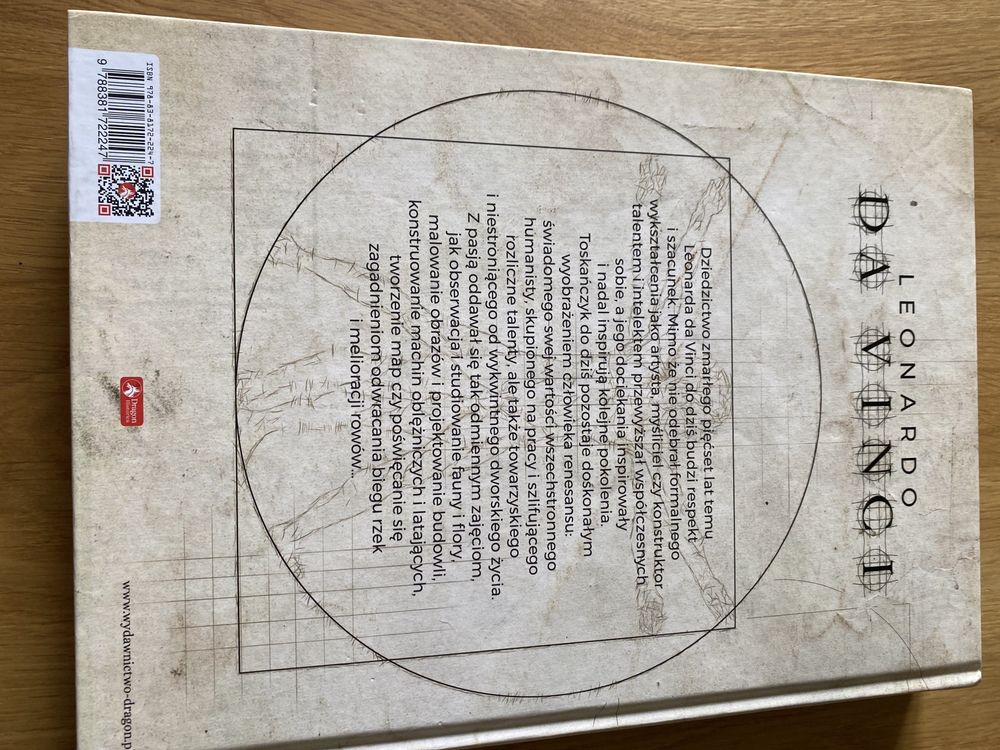 LEONARDO
DA VINCI
Dziedzictwo zmarłego pięćset lat temu
Leonarda da Vinci do dziś budzi respekt
i szacunek. Mimo że nie odebrał formalnego
wykształcenia jako artysta, myśliciel czy konstruktor
talentem i intelektem przewyższał współczesnych
sobie, a jego dociekania inspirowały
i nadal inspirują kolejne pokolenia.
Toskańczyk do dziś pozostaje doskonałym
wyobrażeniem człowieka renesansu:
świadomego swej wartości wszechstronnego
humanisty, skupionego na pracy i szlifującego
rozliczne talenty, ale także towarzyskiego
i niestroniącego od wykwintnego dworskiego życia.
Z pasją oddawał się tak odmiennym zajęciom,
jak obserwacja i studiowanie fauny i flory,
malowanie obrazów i projektowanie budowli,
konstruowanie machin oblężniczych i latających,
tworzenie map czy poświęcanie się
zagadnieniom odwracania biegu rzek
i melioracji rowów...
ISBN 978-83-8172-224-7
9 788381 722247
Dragon
www.wydawnictwo-dragon.p